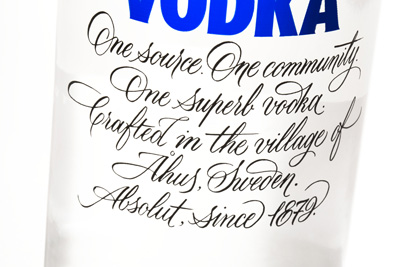 VODKA
One source. One community.
One superb vodka.
Crafted in the village of
Åhus, Sweden.
Absolut, since 1879.